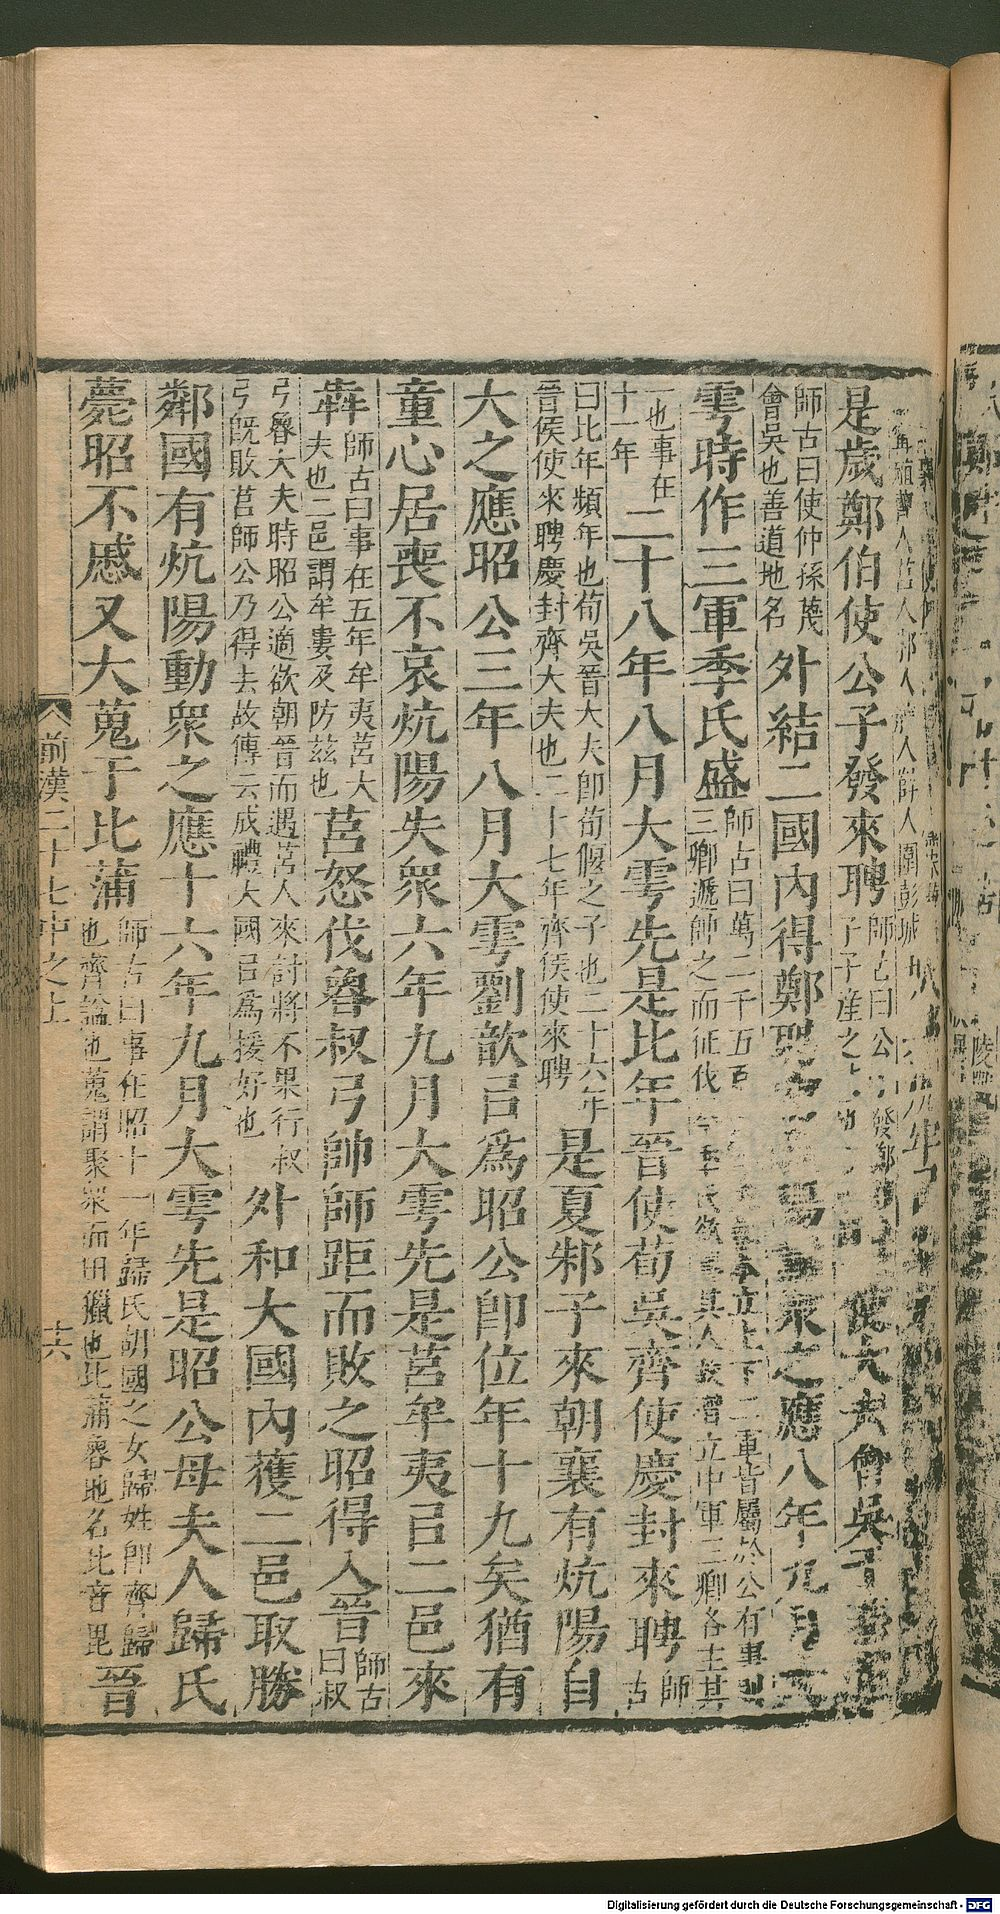 人莒人邾人滕人薛人圍彭城
是歲鄭伯使公子發來聘師古曰公子發鄭子產之使大夫會吳于善道
師古曰使仲孫蔑會吳也善道地名外結二國內得鄭聘陽動衆之應八年九月大
雩時作三軍季氏盛師古曰萬二千五百立上下二軍皆屬於公有事則三卿遞帥之而征伐季氏欲其人故增立中軍三卿各主其
一也事在十一年二十八年八月大雩先是比年晉使荀吳齊使慶封來聘師古
曰比年頻年也荀吳晉大夫即荀偃之子也二十六年晉侯使來聘慶封齊大夫也二十七年齊侯使來聘是夏邾子來朝襄有炕陽自
大之應昭公三年八月大雩劉歆㠯爲昭公卽位年十九矣猶有
童心居喪不哀炕陽失衆六年九月大雩先是莒牟夷㠯二邑來
犇師古曰事在五年牟夷莒大夫也二邑謂牟婁及防茲也莒怒伐魯叔弓帥師距而敗之昭得入晉師古曰叔
弓魯大夫時昭公適欲朝晉而遇莒人來討將不果行叔弓旣敗莒師公乃得去故傳云成禮大國㠯爲援好也外和大國內獲二邑取勝
鄰國有炕陽動衆之應十六年九月大雩先是昭公母夫人歸氏
薨昭不慼又大蒐于比蒲師古曰事在昭十一年歸氏胡國之女歸姓卽齊歸也齊謚也蒐謂聚衆而田獵也比蒲魯地名比音毘晉
前漢二十七中之上
十六
Digitalisierung gefördert durch die Deutsche Forschungsgemeinschaft - DFG